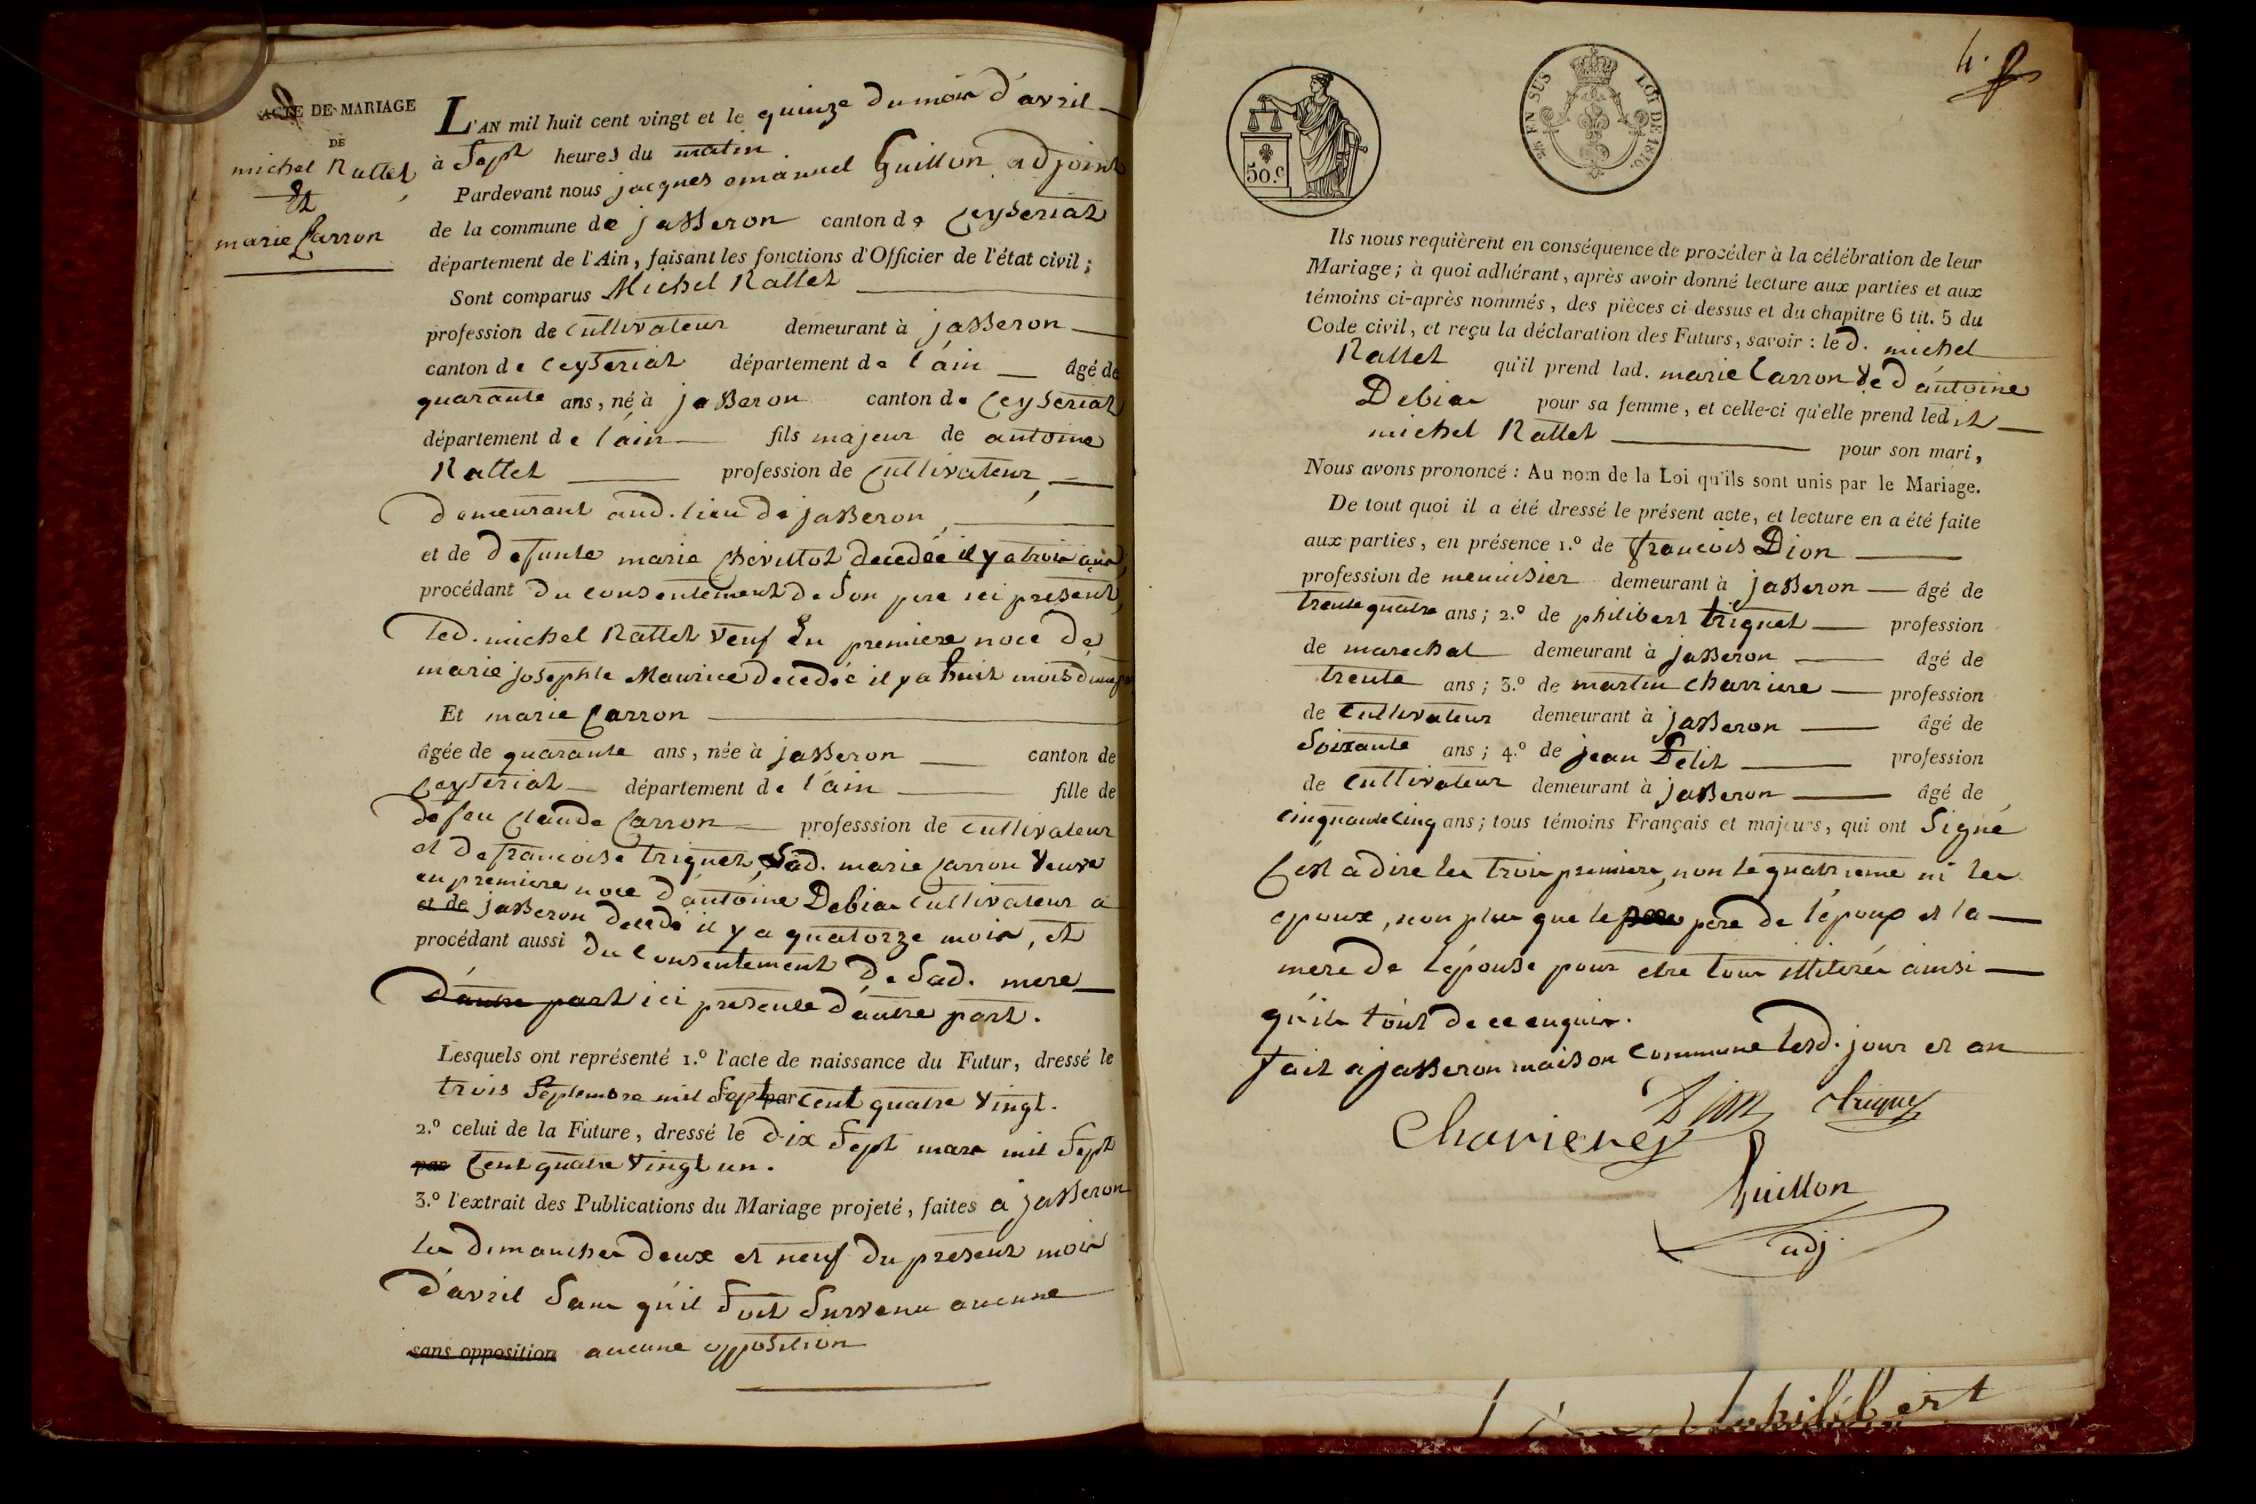 ACTE DE MARIAGE
DE
michel Rattet
Et
marie Carron
L'AN mil huit cent vingt et le quinze du mois d'avril
à Sept heures du matin
Pardevant nous jacques emanuel Guillon adjoint
de la commune de jasseron canton de Ceyseriat
département de l'Ain, faisant les fonctions d'Officier de l'état civil;
Sont comparus Michel Rattet
profession de cultivateur demeurant à jasseron
canton de Ceyseriat département de l'ain âgé de
quarante ans, né à jasseron canton de Ceyseriat
département de l'ain fils majeur de antoine
Rattet profession de Cultivateur
demeurant aud. lieu de jasseron,
et de defunte marie Chevillot decedée il y a trois ans,
procédant du consentement de Son pere ici présent,
led. michel Rattet veuf En premiere noce de
marie josephte Maurice decedée il y a huit mois
Et marie Carron
âgée de quarante ans, née à jasseron canton de
Ceyseriat département de l'ain fille de
de feu Claude Carron professsion de cultivateur
et de francoise triquet, Lad. marie Carron veuve
en premiere noce d'antoine Debias Cultivateur a
et de jasseron decedé il y a quatorze mois, et
procédant aussi du consentement de Sad. mere
d'autre part ici presente d'autre part.
Lesquels ont représenté 1.º l'acte de naissance du Futur, dressé le
trois Septembre mil Sept par cent quatre vingt.
2.º celui de la Future, dressé le dix Sept mars mil Sept
par Cent quatre vingt un.
3.º l'extrait des Publications du Mariage projeté, faites a jasseron
les dimanches deux et neuf du present mois
d'avril Sans qu'il Soit Survenu aucune
sans opposition aucune opposition
4.
50.c
EN SUS LOI DE 1816.
Ils nous requièrent en conséquence de procéder à la célébration de leur
Mariage; à quoi adhérant, après avoir donné lecture aux parties et aux
témoins ci-après nommés, des pièces ci-dessus et du chapitre 6 tit. 5 du
Code civil, et reçu la déclaration des Futurs, savoir: le d. michel
Rattet qu'il prend lad. marie Carron Ve d'antoine
Debias pour sa femme, et celle-ci qu'elle prend ledit
michel Rattet pour son mari,
Nous avons prononcé: Au nom de la Loi qu'ils sont unis par le Mariage.
De tout quoi il a été dressé le présent acte, et lecture en a été faite
aux parties, en présence 1.º de françois Dion
profession de menuisier demeurant à jasseron âgé de
trente quatre ans; 2.º de philibert triquet profession
de marechal demeurant à jasseron âgé de
trente ans; 3.º de martin charriere profession
de Cultivateur demeurant à jasseron âgé de
Soixante ans; 4.º de jean Petit profession
de Cultivateur demeurant à jasseron âgé de
cinquante cinq ans; tous témoins Français et majeurs, qui ont Signé
C'est a dire les trois premiers, non le quatrieme ni les
epoux, non plus que le pere de l'époux et la
mere de l'épouse pour etre tous illiterés ainsi
qu'ils l'ont de ce enquis.
fait a jasseron maison commune lesd. jour et an
Dion triquet
Charierey
Guillon
adj.
philibert